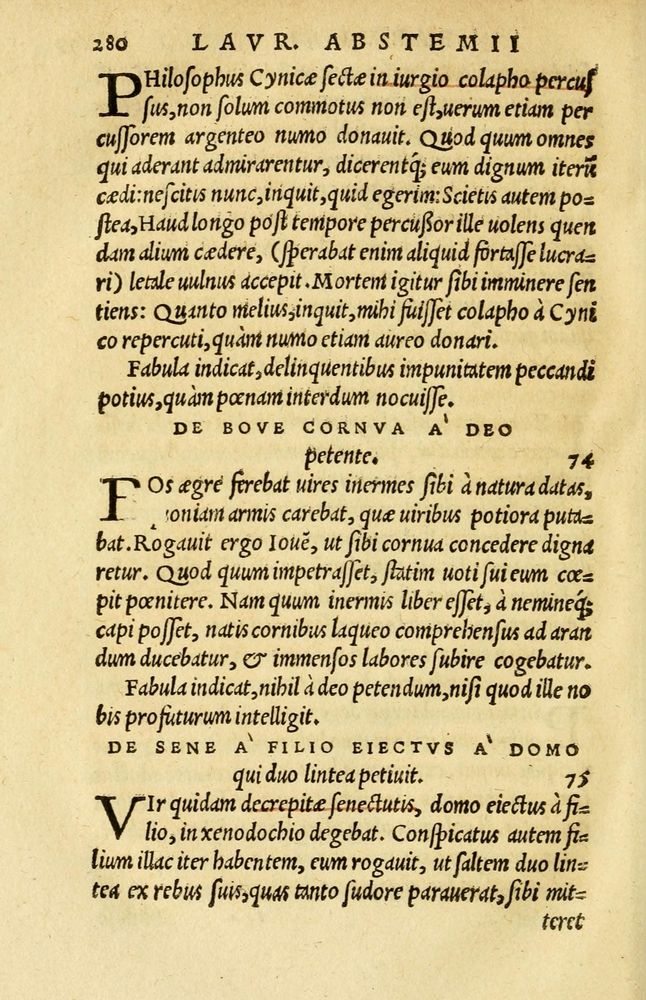 280 LAVR. ABSTEMII
PHilosophus Cynicæ sectæ in iurgio colapho percus
sus, non solum commotus non est, uerum etiam per
cussorem argenteo numo donauit. Quod quum omnes
qui aderant admirarentur, dicerentq́; eum dignum iterũ
cædi: nescitis nunc, inquit, quid egerim: Scietis autem po=
stea, Haud longo post tempore percußor ille uolens quen
dam alium cædere, (sperabat enim aliquid fortasse lucra=
ri) letale uulnus accepit. Mortem igitur sibi imminere sen
tiens: Quanto melius, inquit, mihi fuisset colapho à Cyni
co repercuti, quàm numo etiam aureo donari.
Fabula indicat, delinquentibus impunitatem peccandi
potius, quàm pœnam interdum nocuisse.
DE BOVE CORNVA A` DEO
petente. 74
Os ægre ferebat uires inermes sibi à natura datas,
oniam armis carebat, quæ uiribus potiora puta=
bat. Rogauit ergo Iouẽ, ut sibi cornua concedere digna
retur. Quod quum impetrasset, statim uoti sui eum cœ=
pit pœnitere. Nam quum inermis liber esset, à nemineq́;
capi posset, natis cornibus laqueo comprehensus ad aran
dum ducebatur, & immensos labores subire cogebatur.
Fabula indicat, nihil à deo petendum, nisi quod ille no
bis profuturum intelligit.
DE SENE A` FILIO EIECTVS A` DOMO
qui duo lintea petiuit. 75
VIr quidam decrepitæ senectutis, domo eiectus à fi=
lio, in xenodochio degebat. Conspicatus autem fi=
lium illac iter habentem, eum rogauit, ut saltem duo lin=
tea ex rebus suis, quas tanto sudore parauerat, sibi mit=
teret